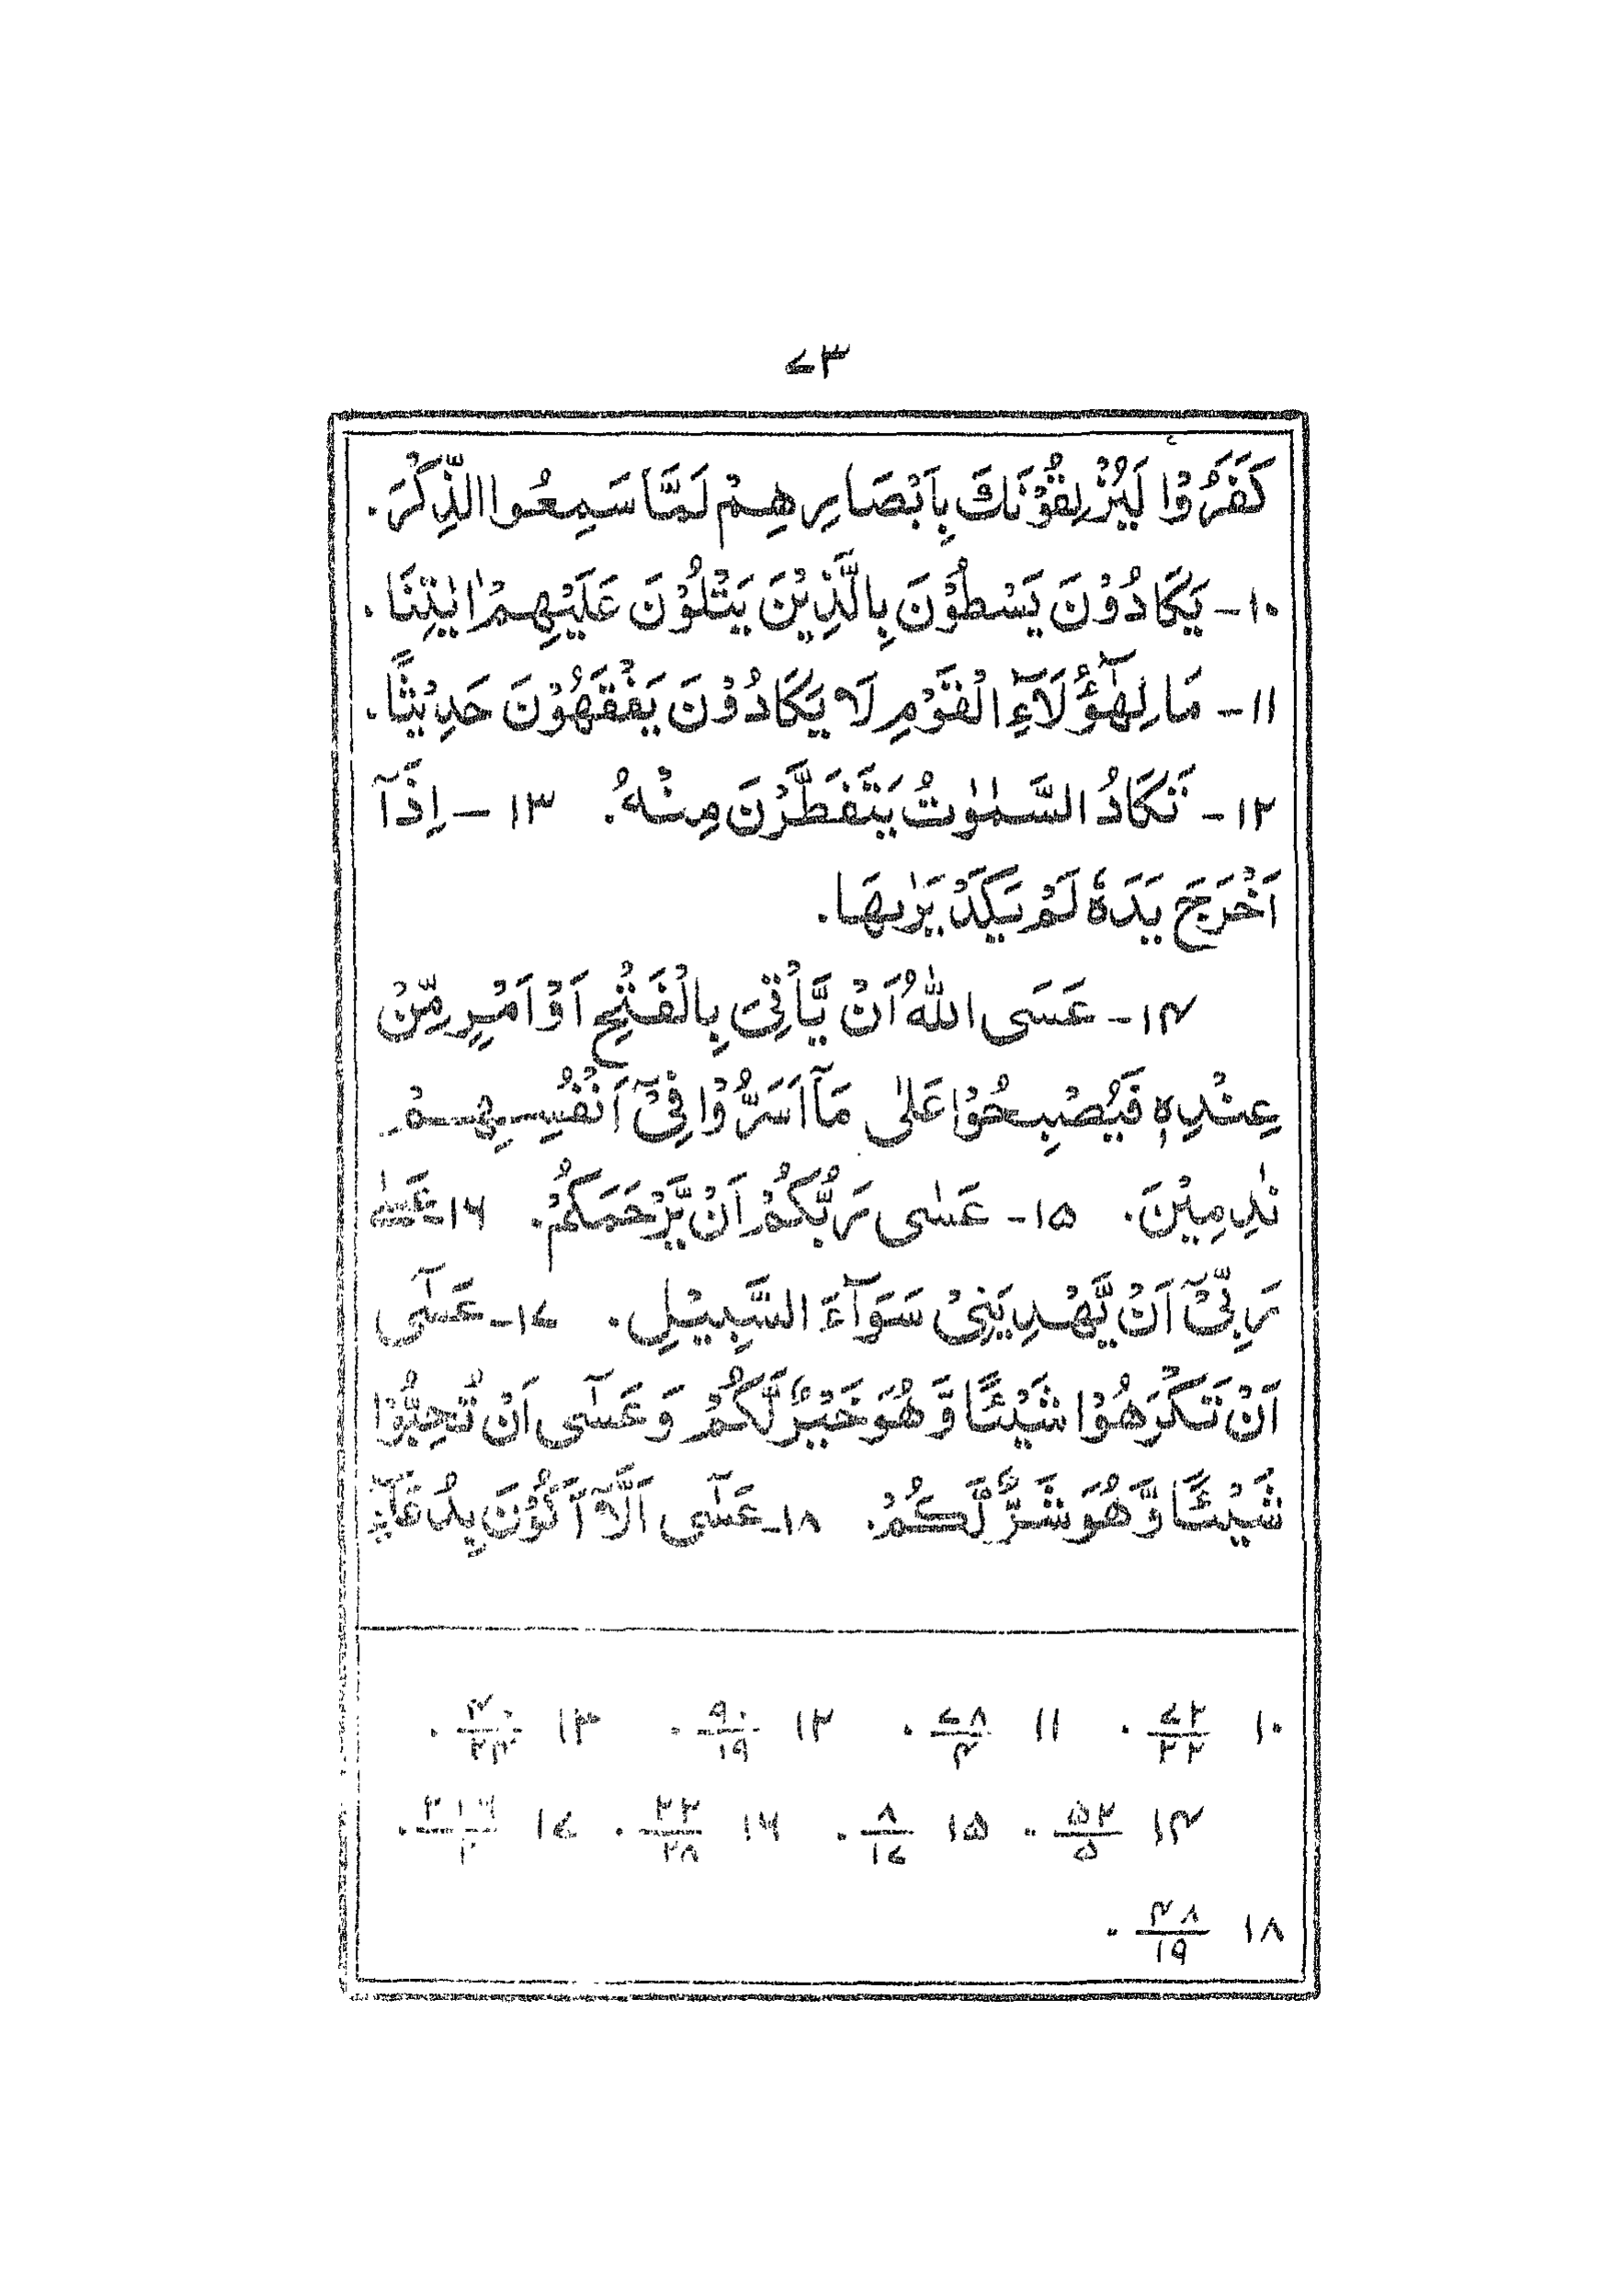 ۷۳
كَفَرُوْا لَيُزْلِقُوْنَكَ بِاَبْصَارِهِمْ لَمَّا سَمِعُوا الذِّكْرَ.
۱۰- يَكَادُوْنَ يَسْطُوْنَ بِالَّذِيْنَ يَتْلُوْنَ عَلَيْهِمْ اٰيٰتِنَا.
۱۱- مَا لِهٰٓؤُلَآءِ الْقَوْمِ لَا يَكَادُوْنَ يَفْقَهُوْنَ حَدِيْثًا.
۱۲- تَكَادُ السَّمٰوٰتُ يَتَفَطَّرْنَ مِنْهُ. ۱۳- اِذَآ
اَخْرَجَ يَدَهٗ لَمْ يَكَدْ يَرٰىهَا.
۱۴- عَسَى اللّٰهُ اَنْ يَّاْتِىَ بِالْفَتْحِ اَوْ اَمْرٍ مِّنْ
عِنْدِهٖ فَيُصْبِحُوْا عَلٰى مَآ اَسَرُّوْا فِىْٓ اَنْفُسِهِمْ
نٰدِمِيْنَ. ۱۵- عَسٰى رَبُّكُمْ اَنْ يَّرْحَمَكُمْ. ۱۶- عَسٰى
رَبِّىْٓ اَنْ يَّهْدِيَنِىْ سَوَآءَ السَّبِيْلِ. ۱۷- عَسٰٓى
اَنْ تَكْرَهُوْا شَيْئًا وَّهُوَ خَيْرٌ لَّكُمْ وَعَسٰٓى اَنْ تُحِبُّوْا
شَيْئًا وَّهُوَ شَرٌّ لَّكُمْ. ۱۸- عَسٰٓى اَلَّآ اَكُوْنَ بِدُعَآءِ
۱۰ ۷۲/۲۲. ۱۱ ۷۸/۴. ۱۲ ۹۰/۱۹. ۱۳ ۴۰/۲۴.
۱۴ ۵۲/۵. ۱۵ ۸/۱۷. ۱۶ ۲۲/۲۸. ۱۷ ۲۱۶/۲.
۱۸ ۴۸/۱۹.